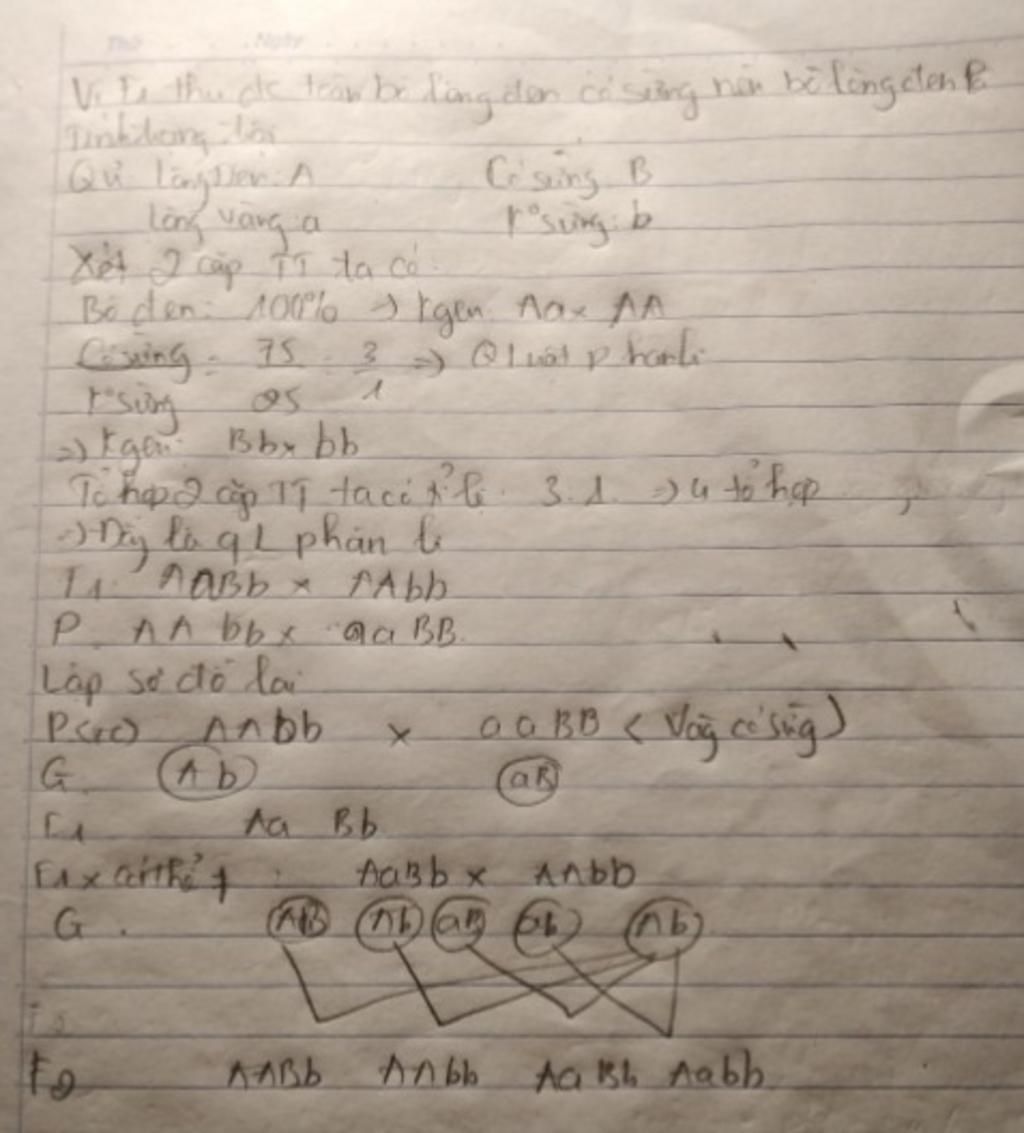 Thứ Ngày
Vì F1 thu đc toàn bò lông đen có sừng nên bò lông đen là
tính trạng trội
Qư lông Đen: A Có sừng B
lông vàng: a k° sừng: b
Xét 2 cặp TT ta có
Bò đen: 100% => kgen Aa x AA
Có sừng = 75 = 3 => Q luật phân li
k° sừng 25 1
=> kgen: Bb x bb
Tổ hợp 2 cặp TT ta có tỉ lệ 3:1 => 4 tổ hợp
=> Đây là qL phân li
F1: AaBb x AAbb
P AAbb x aaBB.
Lập sơ đồ lai
P(tc) AAbb x aaBB (Vàg có sừg)
G Ab aB
F1 Aa Bb
F1 x cá thể : AaBb x AAbb
G. AB Ab aB ab Ab
F2 AABb AAbb AaBb Aabb